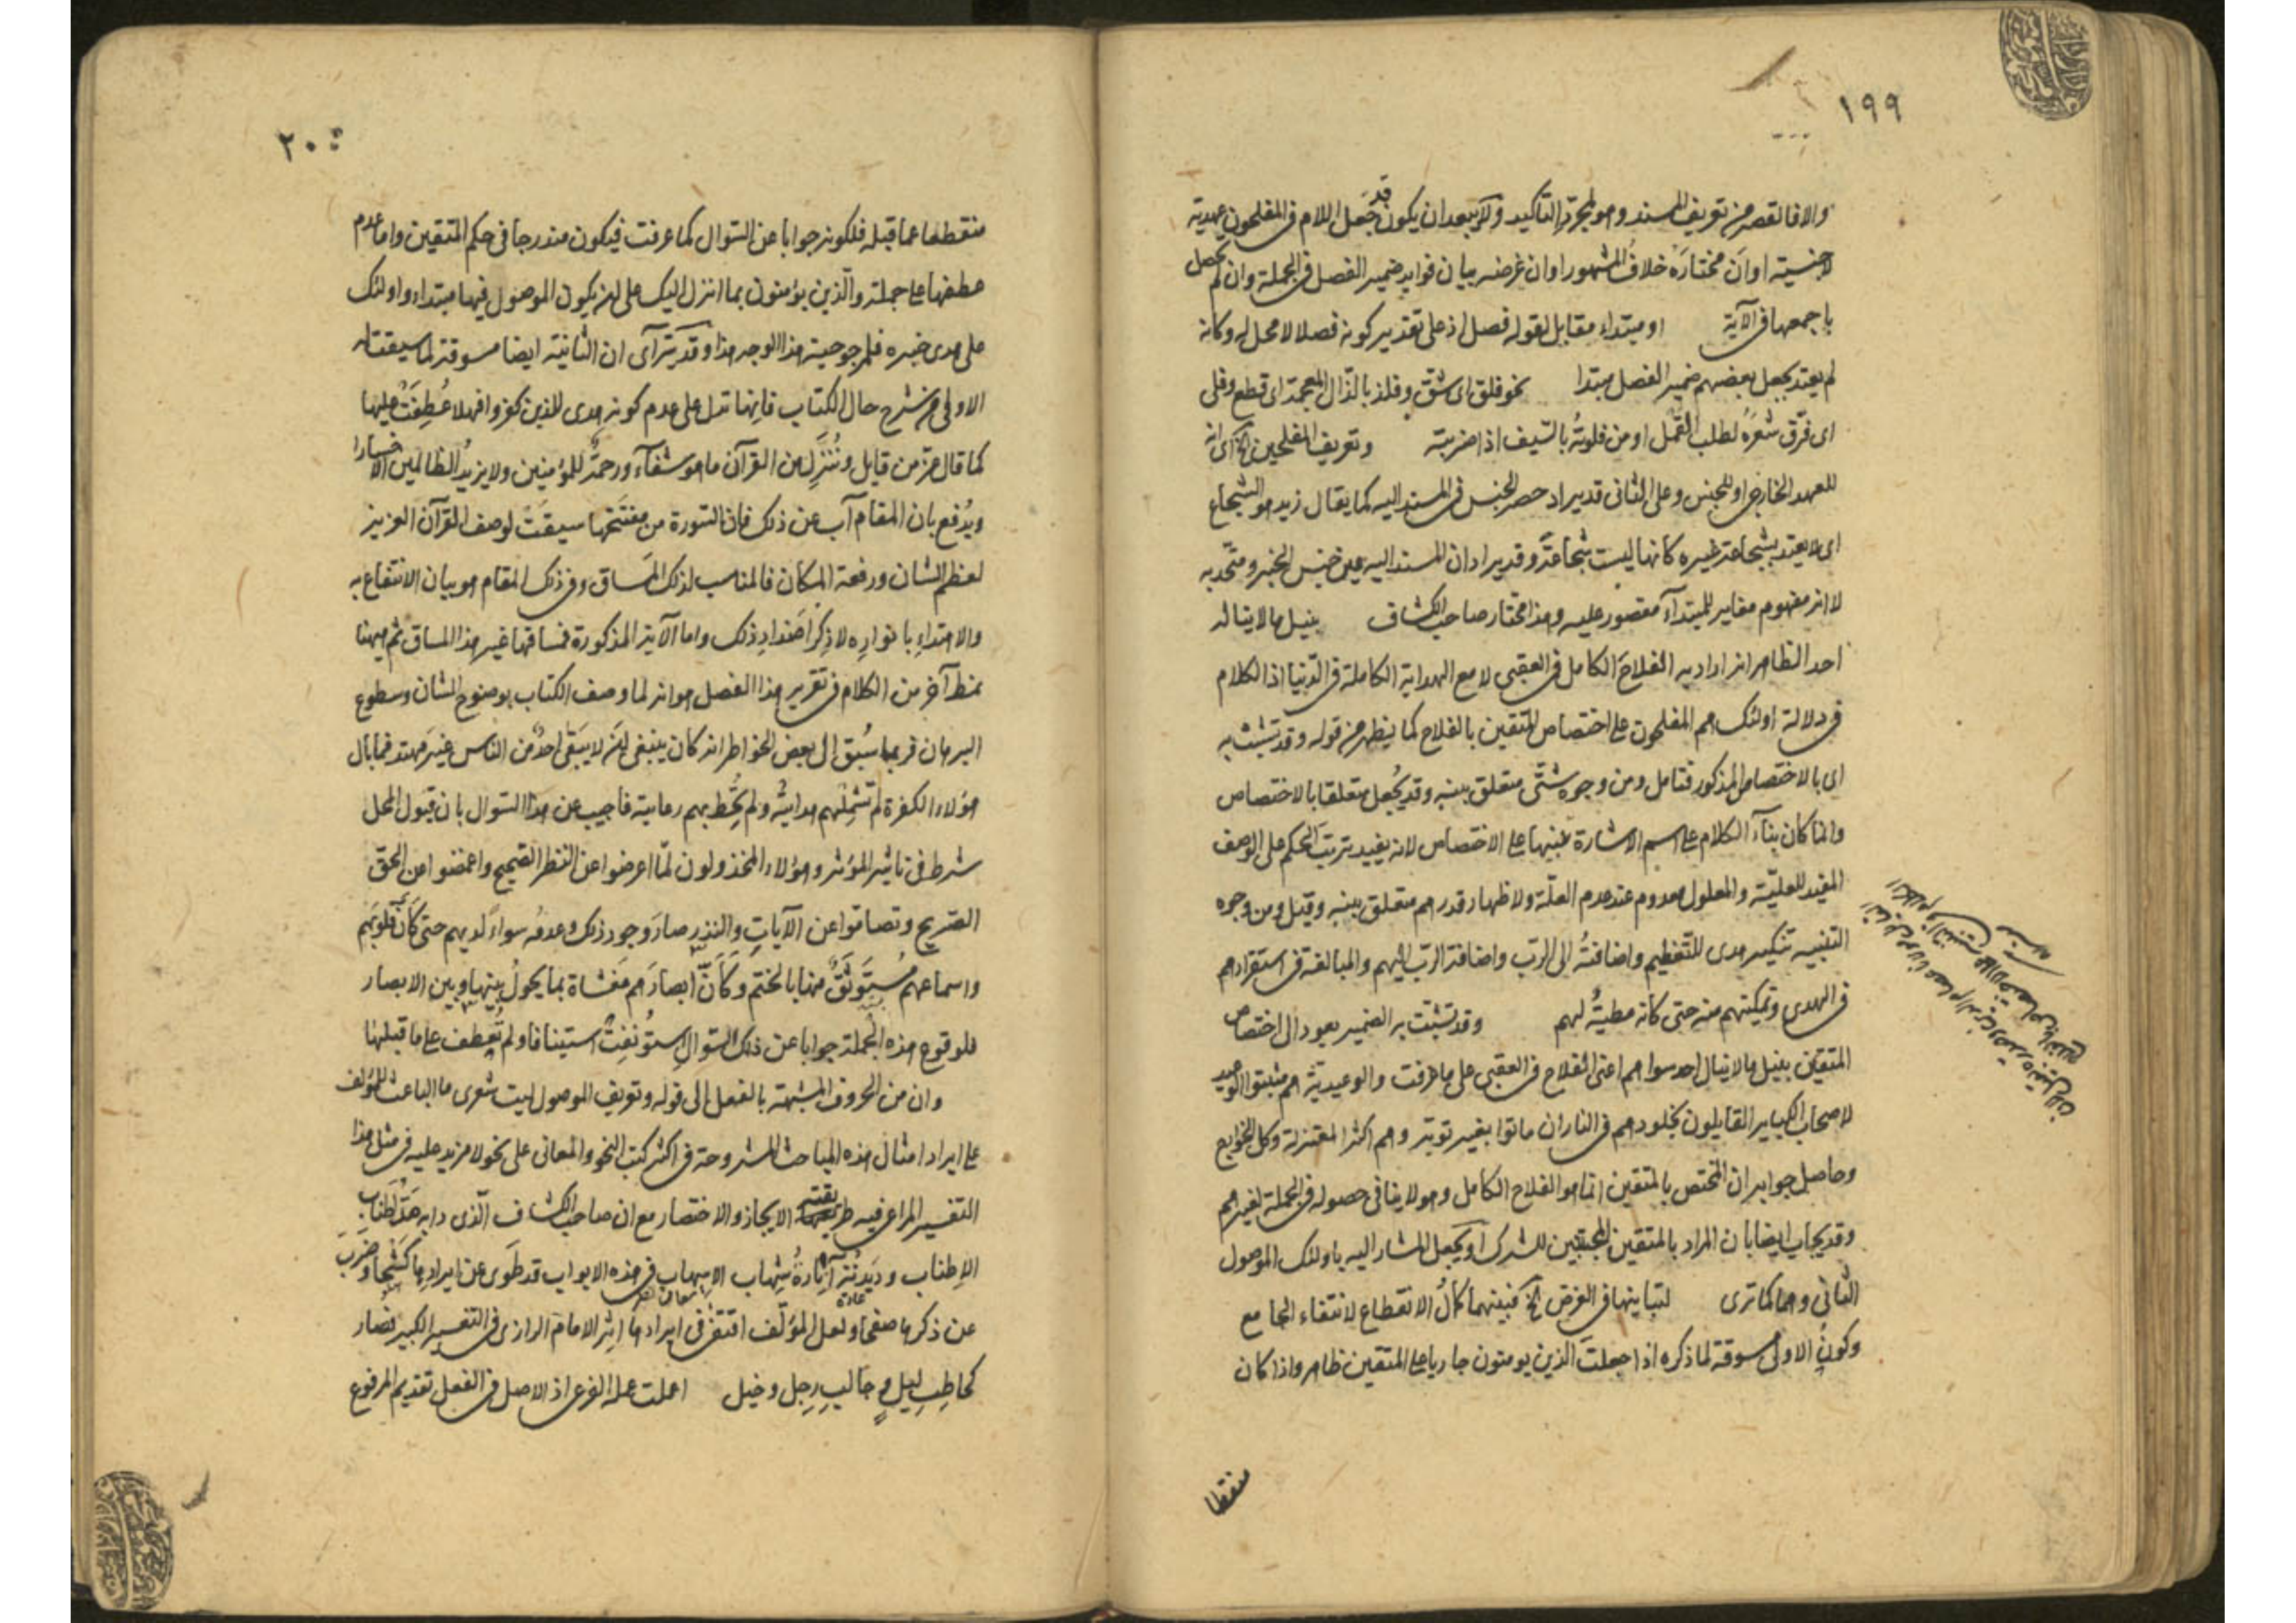 ١٩٩
والا فالقصر من تعريف المسند وهو لمجرد التأكيد ولا يبعد ان يكون قد جعل اللام في المفلحون عهدية
لا جنسية او ان مختاره خلاف المشهور او ان غرضه بيان فوايد ضمير الفصل في الجملة وان لم يحصل
باجمعها في الآية او مبتداء مقابل لقوله فصل اذ على تقدير كونه فصلا لا محل له وكانه
لم يعتد بجعل بعضهم ضمير الفصل مبتدا نحو فلق اى شق وفلذ بالذال المعجمة اى قطع وفلى
اى فرّق شعره لطلب القمل او من فلوته بالسيف اذا ضربته وتعريف المفلحين الخ اى انه
للعهد الخارجي او للجنس وعلى الثانى قد يراد حصر الجنس فى المسند اليه كما يقال زيد هو الشجاع
اى لا يعتد بشجاعة غيره كانها ليست شجاعة وقد يراد ان المسند اليه عين جنس الخبر ومتحد به
لا انه مفهوم مغاير للمبتدأ مقصور عليه وهذا مختار صاحب الكشاف بنيل ما لا يناله
احد الظاهر انه اراد به الفلاح الكامل فى العقبى لا مع الهداية الكاملة فى الدنيا اذ الكلام
فى دلالة اولئك هم المفلحون على اختصاص المتقين بالفلاح كما يظهر من قوله وقد تشبث به
اى بالاختصاص المذكور فتامل ومن وجوه شتى متعلق بنبه وقد يجعل متعلقا بالاختصاص
وانما كان بناء الكلام على اسم الاشارة منبها على الاختصاص لانه يفيد ترتب الحكم على الوصف
المفيد للعلية والمعلول معدوم عند عدم العلة ولاظهار قدرهم متعلق بنبه وقيل ومن وجوه
التنبيه تنكير هدى للتعظيم واضافته الى الرب واضافة الرب اليهم والمبالغة فى استقرارهم
فى الهدى وتمكينهم منه حتى كانه مطية لهم وقد تشبث به الضمير يعود الى اختصاص
المتقين بنيل ما لا ينال احد سواهم اعنى الفلاح فى العقبى على ما عرفت والوعيدية هم مثبتوا الوعيد
لاصحاب الكباير القايلون بخلودهم فى النار ان ماتوا بغير توبة وهم اكثر المعتزلة وكل الخوارج
وحاصل جوابه ان المختص بالمتقين انما هو الفلاح الكامل وهو لا ينافى حصوله فى الجملة لغيرهم
وقد يجاب ايضا بان المراد بالمتقين المجتنبين للشرك او يجعل المشار اليه باولئك الموصول
الثانى وهما كما ترى لتباينهما فى الغرض الخ فبينهما كمال الانقطاع لانتفاء الجامع
وكون الاولى مسوقة لما ذكره اذا جعلت الذين يومنون جاريا على المتقين ظاهر واذا كان
منقطعا
٢٠٠
منقطعا عما قبله فلكونه جوابا عن السوال كما عرفت فيكون مندرجا فى حكم المتقين واما عدم
عطفها على جملة والذين يؤمنون بما انزل اليك على ان يكون الموصول فيها مبتداء واولئك
على هدى خبره فلمرجوحية هذا الوجه هذا وقد يترآى ان الثانية ايضا مسوقة لما سيقت له
الاولى من شرح حال الكتاب فانها تدل على عدم كونه هدى للذين كفروا فهلا عُطِفَتْ عليها
كما قال عز من قايل وننزل من القرآن ما هو شفآء ورحمة للمؤمنين ولا يزيد الظالمين الا خسارا
ويدفع بان المقام آب عن ذلك فان السورة من مفتتحها سيقت لوصف القرآن العزيز
لعظم الشان ورفعة المكان فالمناسب لذلك المساق وفى ذلك المقام هو بيان الانتفاع به
والاهتداء بانواره لا ذكر اضداد ذلك واما الآية المذكورة فمساقها غير هذا المساق ثم ههنا
نمط آخر من الكلام فى تقرير هذا الفصل هو انه لما وصف الكتاب بوضوح الشان وسطوع
البرهان فربما سُبق الى بعض الخواطر انه كان ينبغى ان لا يبقى احد من الناس غير مهتد فما بال
هؤلاء الكفرة لم تشملهم هدايته ولم يحُط بهم رعايته فاجيب عن هذا السوال بان قبول المحل
شرط فى تاثير المؤثر وهؤلاء المخذولون لمّا اعرضوا عن النظر الصحيح واغمضوا عن الحق
الصريح وتصامّوا عن الآيات والنذر صار وجود ذلك وعدمه سواءً لديهم حتى كأنّ قلوبَهم
واسماعهم مُستَوثَقٌ منها بالختم وكَأنّ ابصارَهم مغشاة بما يحول بينها وبين الابصار
فلوقوع هذه الجملة جوابا عن ذلك السوال استؤنفت استينافا ولم تعطف على ما قبلها
وان من الحروف المشبهة بالفعل الى قوله وتعريف الموصول ليت شعرى ما الباعث للمؤلف
على ايراد امثال هذه المباحث المشروحة فى اكثر كتب النحو والمعانى على نحو لا مزيد عليه فى مثل هذا
التفسير المراعى فيه طريقة الايجاز والاختصار مع ان صاحب الكشاف الّذى دابه مَدّ اطناب
الاطناب وديدنته اثارة شهاب الاسهاب فى هذه الابواب قد طوى عن ايرادها كشحا وضَرَبَ
عن ذكرها صفحا ولعل المؤلّف اقتفى فى ايرادها اثر الامام الرازى فى التفسير الكبير فصار
كحاطب ليل وجالب رجل وخيل اعملت عمله الفرعى اذ الاصل فى الفعل تقديم المرفوع